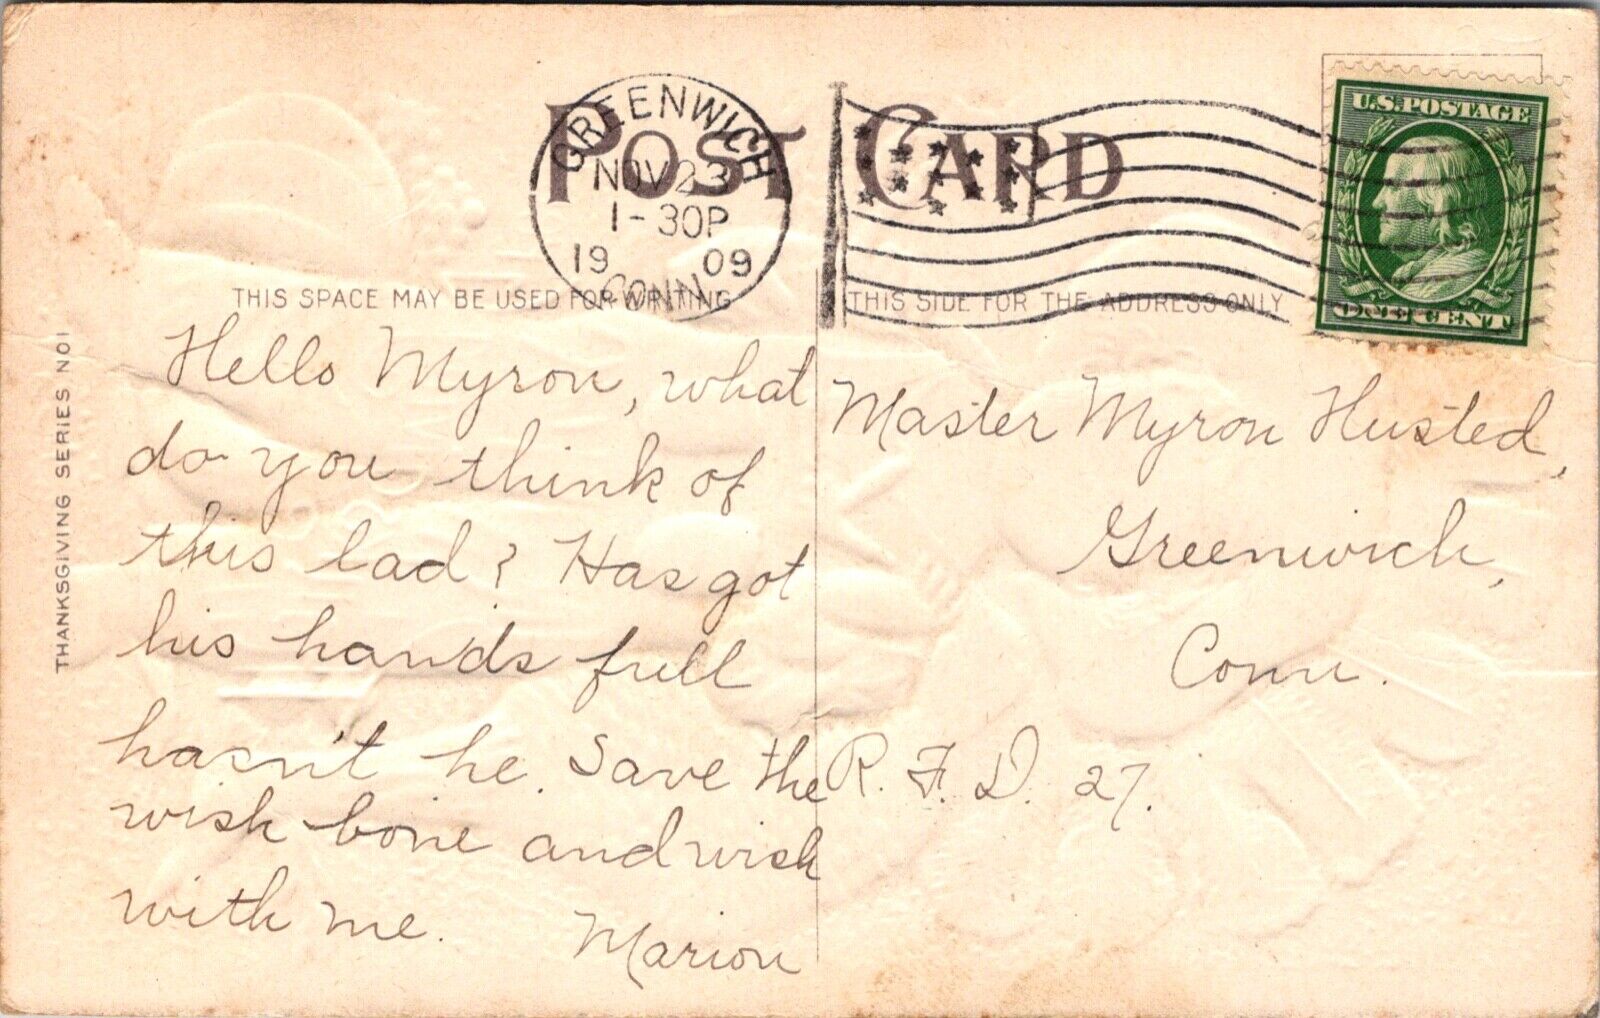 POST CARD
GREENWICH
NOV 23
1-30P
19 09
CONN.
U.S. POSTAGE
ONE CENT
THIS SPACE MAY BE USED FOR WRITING
THIS SIDE FOR THE ADDRESS ONLY
THANKSGIVING SERIES NO1
Hello Myron, what
do you think of
this lad? Has got
his hands full
hasn't he. Save the
wish bone and wish
with me.
Marion
Master Myron Husted,
Greenwich,
Conn.
R. F. D. 27.